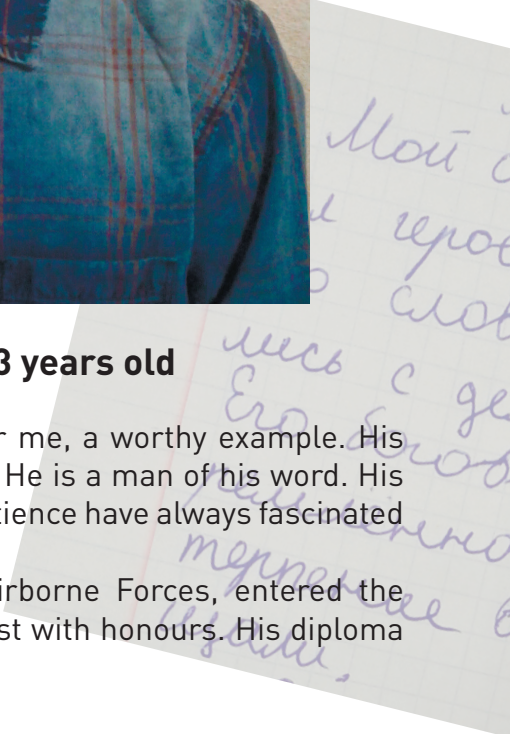 3 years old
r me, a worthy example. His
He is a man of his word. His
tience have always fascinated
irborne Forces, entered the
st with honours. His diploma
Мой
геро
слов
лись с де
Его
терпение в